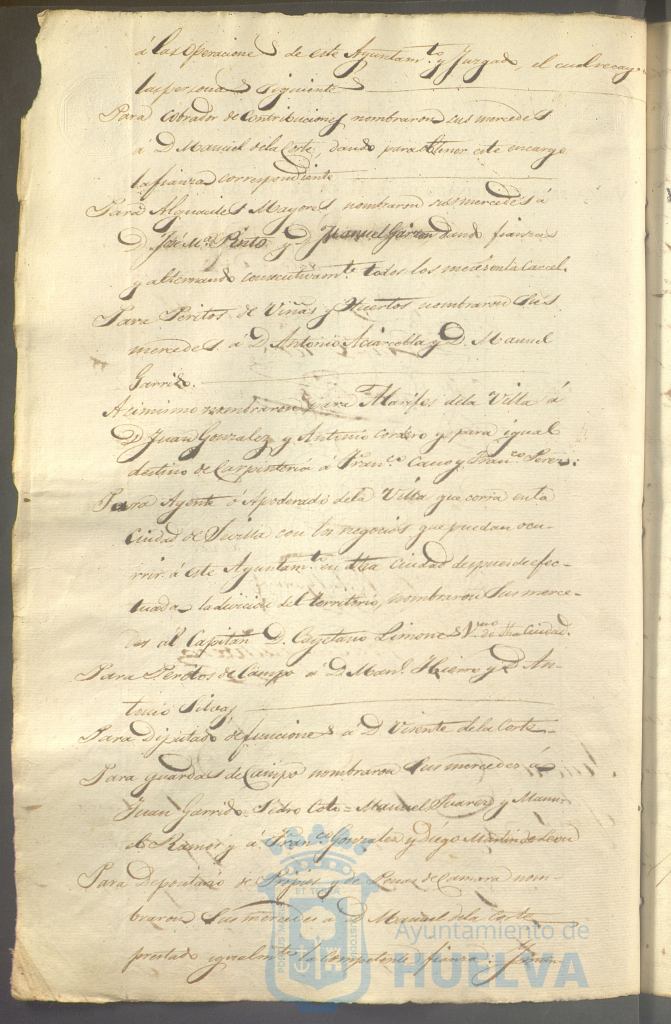 á las operaciones de este Ayuntam.to y Juzgado, el cual recayo
las personas siguientes
Para Cobrador de Contribuciones nombraron sus mercedes
á D. Manuel de la Corte, dando para obtener este encargo
la fianza correspondiente
Para Alguaciles Mayores nombraron sus mercedes á
D. José M.a Pinto y D. Manuel Garzon dando fianza
y alternando consecutivam.te todos los meses en la Carcel.
Para Peritos de Viñas y Huertos nombraron sus
mercedes á D. Antonio y D. Manuel
Garrido.
Asimismo nombraron para Alarifes de la Villa á
D. Juan Gonzalez y Antonio Cordero y para igual
destino de Carpinteria á Fran.co Cano y Fran.co Perez:
Para Agente ó Apoderado de la Villa que corra en la
Ciudad de Sevilla con los negocios que puedan ocu-
rrir á este Ayuntam.to en dha Ciudad despues de efec-
tuada la division del territorio, nombraron sus merce-
des al Capitan D. Cayetano Limones V.no de dha Ciudad.
Para Peritos de Campo a D. Man.l Hierro y D. An-
tonio Silvas
Para Diputado de funciones a D. Vicente de la Corte
Para guardas de Campo nombraron sus mercedes á
Juan Garrido = Pedro Coto = Manuel Suarez y Manu-
el Ramos y á Fran.co Gonzalez y Diego Martin de Leon
Para Depositario de Propios y de Penas de Camara nom-
braron sus mercedes a D. Manuel de la Corte
prestado igualm.te la competente fianza:
Ayuntamiento de
HUELVA